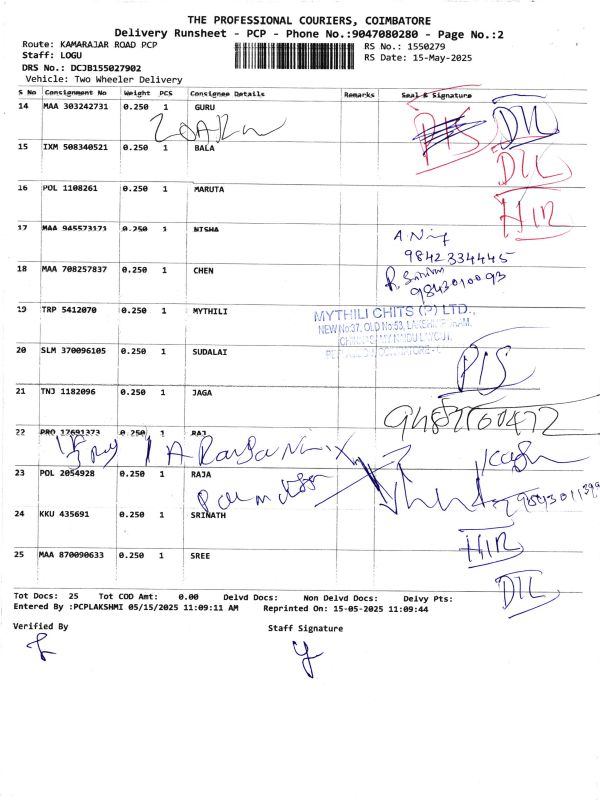 THE PROFESSIONAL COURIERS, COIMBATORE
Delivery Runsheet - PCP - Phone No.:9047080280 - Page No.:2
Route: KAMARAJAR ROAD PCP
Staff: LOGU
DRS No.: DCJB155027902
Vehicle: Two Wheeler Delivery
RS No.: 1550279
RS Date: 15-May-2025
S No Consignment No Weight PCS Consignee Details Remarks Seal & Signature
14 MAA 303242731 0.250 1 GURU
DTL
15 IXM 508340521 0.250 1 BALA
DTL
16 POL 1108261 0.250 1 MARUTA
HIR
17 MAA 945573171 0.250 1 NISHA
9842334445
18 MAA 708257837 0.250 1 CHEN
9843010093
19 TRP 5412070 0.250 1 MYTHILI
MYTHILI CHITS (P) LTD.,
NEW No:37, OLD No:53,
20 SLM 370096105 0.250 1 SUDALAI
PIS
21 TNJ 1182096 0.250 1 JAGA
22 PRO 17691373 0.250 1 RAJ
23 POL 2054928 0.250 1 RAJA
24 KKU 435691 0.250 1 SRINATH
HIR
25 MAA 870090633 0.250 1 SREE
DTL
Tot Docs: 25 Tot COD Amt: 0.00 Delvd Docs: Non Delvd Docs: Delvy Pts:
Entered By :PCPLAKSHMI 05/15/2025 11:09:11 AM Reprinted On: 15-05-2025 11:09:44
Verified By Staff Signature